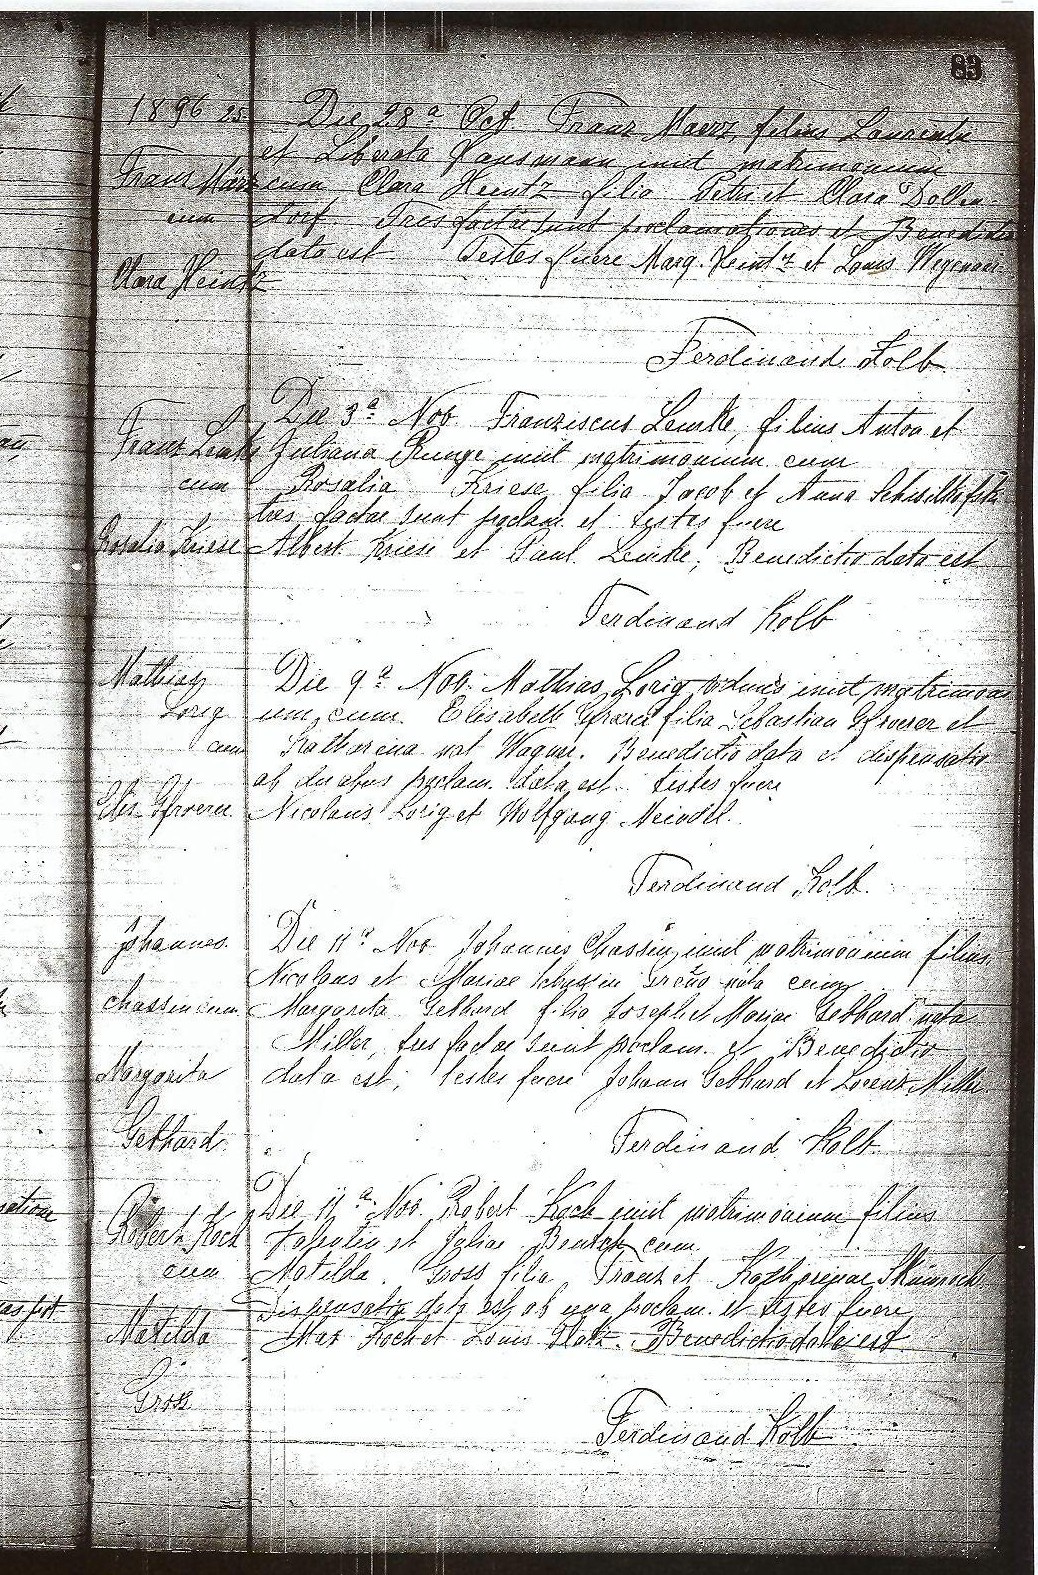 83
1896 25
Die 28ª Oct Franz Maerz, filius Laurentii
et Liberata Hausmann iniit matrimonium
Franz März
cum Clara Heintz filia Petri et Clara Dollen-
cum
dorf. Tres factae sunt proclamationes et Benedictio
data est Testes fuere Marg. Heintz et Louis Wegener
Clara Heintz
Ferdinand Kolb
Die 3ª Nov Franziscus Lemke, filius Anton et
Franz Lemke
Juliana Runge iniit matrimonium cum
cum
Rosalia Kriese, filia Jacob et Anna
tres factae sunt proclam. et testes fuere
Rosalia Kriese
Albert Kriese et Paul Lemke, Benedictio data est
Ferdinand Kolb
Mathias
Die 9ª Nov. Mathias Lorig viduus iniit matrimoni
Lorig
um cum Elisabeth Gfroerer filia Sebastian Gfroerer et
cum
Katharina nat Wagner. Benedictio data et dispensatio
ab duabus proclam. data est. testes fuere
Elis. Gfroerer
Nicolaus Lorig et Wolfgang Meindel.
Ferdinand Kolb.
Johannes
Die 11ª Nov Johannes Chassin, iniit matrimonium filius
Nicolaus et Mariae Chassin nata cum
Chassin cum
Margarita Gebhard filia Joseph et Mariae Gebhard nata
Miller, tres factae sunt proclam. et Benedictio
Margarita
data est, testes fuere Johann Gebhard et Lorenz Miller
Gebhard
Ferdinand Kolb.
Die 11ª Nov. Robert Koch iniit matrimonium filius
Robert Koch
et Juliae cum
cum
Matilda Gross filia Franz et Katharinae
Dispensatio data est ab una proclam. et testes fuere
Matilda
Max Koch et Louis Glatz. Benedictio data est
Gross
Ferdinand Kolb